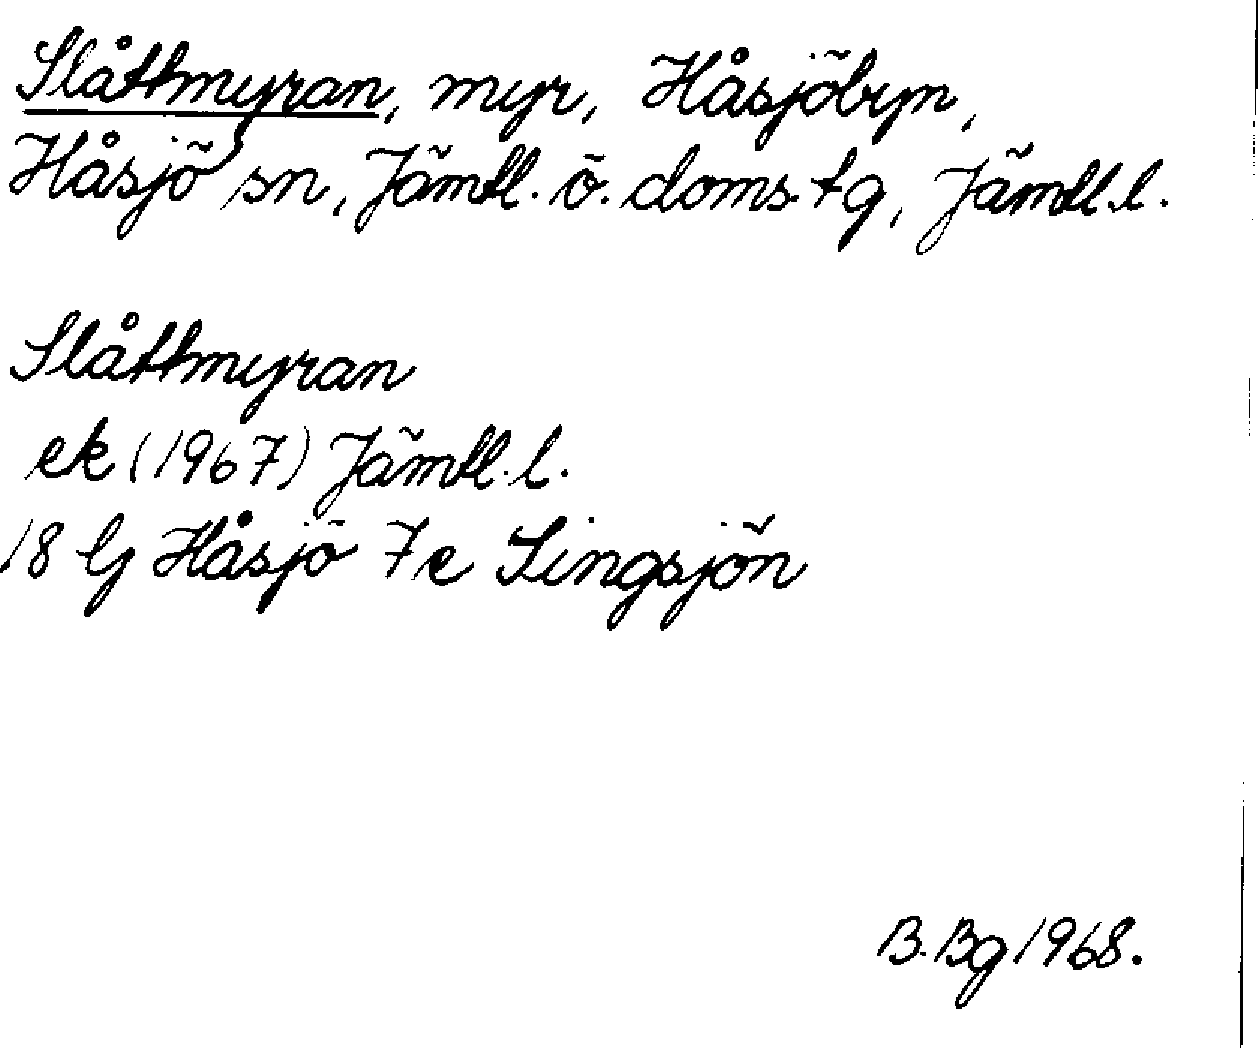 Slåttmyran, myr, Håsjöbyn,
Håsjö sn, Jämtl. ö. doms.tg, Jämtl.l.
Slåttmyran
ek (1967) Jämtl.l.
18 G Håsjö 7e Singsjön
B.Bg 1968.